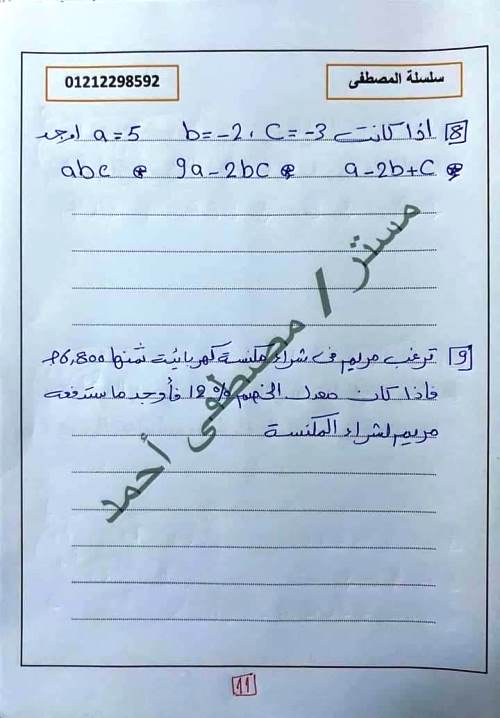 سلسلة المصطفى
01212298592
8 اذا كانت a=5 b=-2، C=-3 اوجد
a-2b+C 9a-2bC abc
مستر / مصطفى أحمد
9 ترغب مريم فى شراء مكنسة كهربائية ثمنها 6,800
فاذا كان معدل الخصم 12% فأوجد ما ستدفعه
مريم لشراء المكنسة
11